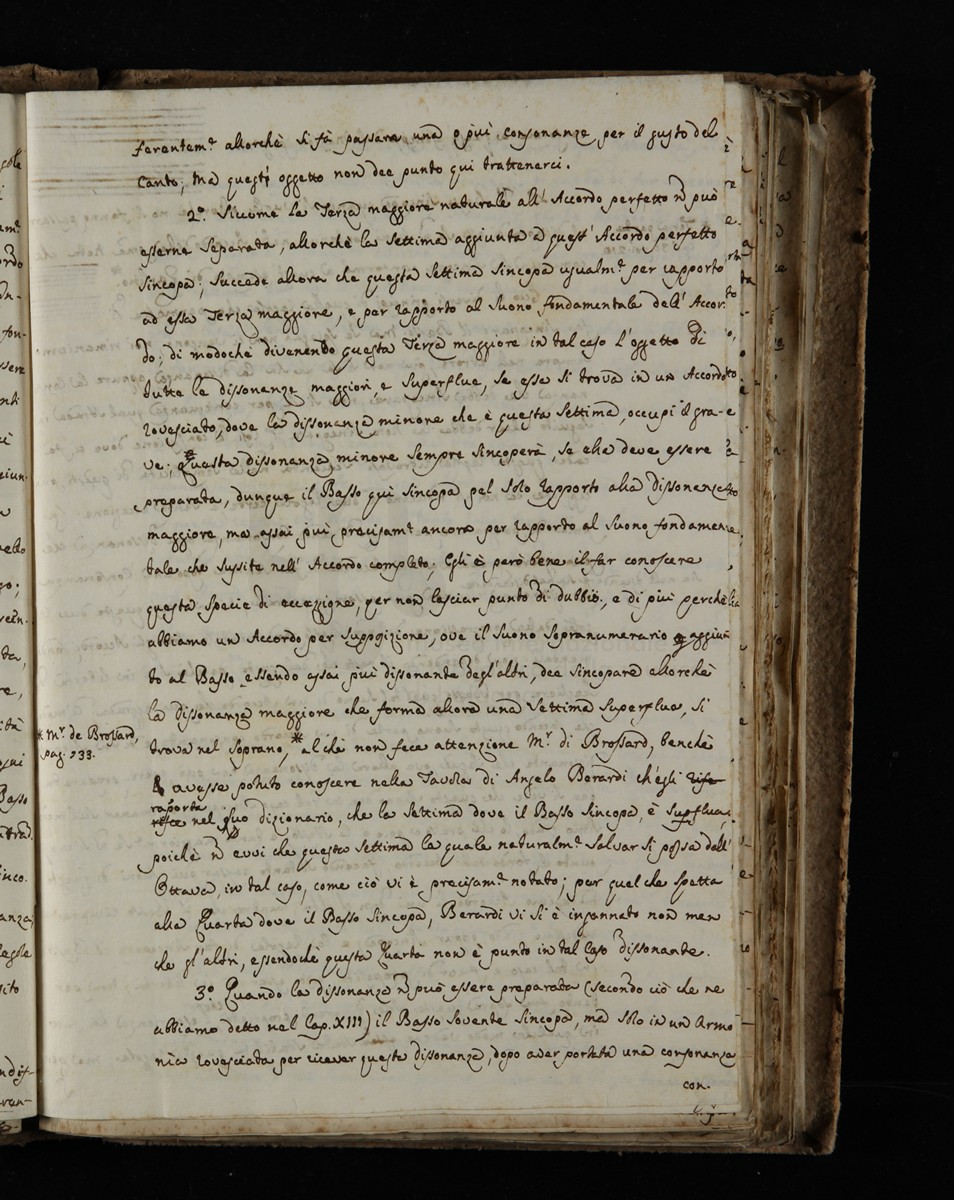 ferentem.e allorchè si fà passare una o più consonanze per il gusto del
Canto; ma questi oggetto non dee punto qui trattenerci.
2.o Siccome la Terza maggiore naturale all' Accordo perfetto ñ può
esserne separata, allorchè la Settima aggiunta a quest' Accordo perfetto
sincopa; succede allora che questa Settima sincopa usualm.e per rapporto
ad essa Terza maggiore, e per rapporto al Suono fondamentale dell' Accor-
do; di modochè divenendo questa Terza maggiore in tal caso l'oggetto di
tutte le dissonanze maggiori, e Superflue, se esse si trova in un Accordo
rovesciato, dove la dissonanza minore che è questa Settima, occupi il gra-
ve; Questa dissonanza minore sempre sincoperà, se ella deve essere
preparata, dunque il Basso quì sincopa pel solo rapporto alla dissonanza
maggiore, ma assai più precisam.e ancora per rapporto al Suono fondamen-
tale che sussite nell' Accordo completo; Egli è però bene il far conoscere
questa specie di eccezzione, per non lasciar punto di dubbio, e di più perchè
abbiamo un Accordo per supposizione, ove il Suono sopranumerario aggiun
to al Basso essendo assai più dissonante degl' altri, dee sincopare allorchè
la dissonanza maggiore che forma allora una Settima superflua, si
* M.r de Brossard,
pag. 133.
trova nel soprano, * al chè non fece attenzione M.r di Brossard, benchè
avesse potuto conoscere nella Tavola di Angelo Berardi ch'egli rife
raporta
risce nel suo dizionario, che la Settima dove il Basso sincopa, è superflua,
poichè ñ evvi che questa Settima la quale naturalm.e salvar si possa dall'
Ottava, in tal caso, come ciò vi è precisam.e notato; per quel che spetta
alla Quarta dove il Basso sincopa, Berardi vi si è ingannato non men
che gl' altri, essendochè questa Quarta non è punto in tal caso dissonante.
3.o Quando la dissonanza ñ può essere preparata (secondo ciò che ne
abbiamo detto nel Cap. XIII) il Basso sovente sincopa, ma solo in un Armo
nia rovesciata per ricever questa dissonanza, dopo aver portata una consonanza
con-